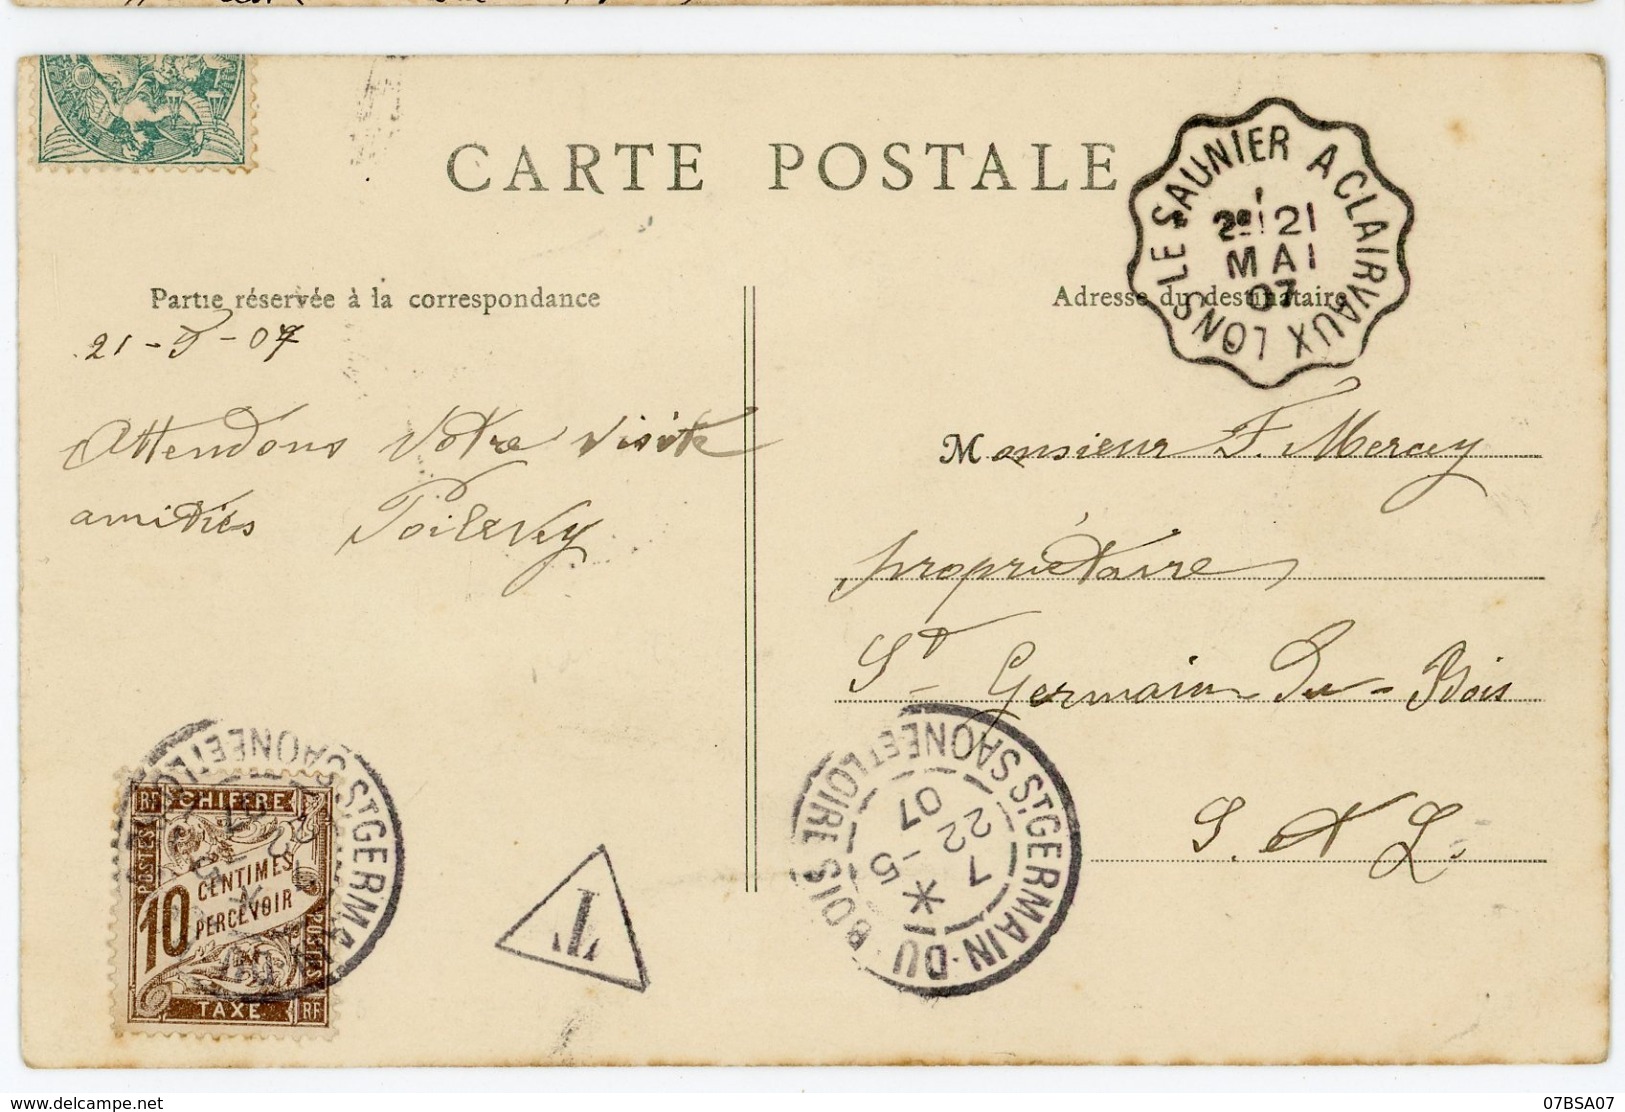 CARTE POSTALE
LONS LE SAUNIER A CLAIRVAUX
2e 21
MAI
07
Partie réservée à la correspondance
Adresse du destinataire
21-5-07
Attendons votre visite
amitiés Poilevey
Monsieur F. Mercey
propriétaire
St Germain Du-Bois
S. & L.
ST GERMAIN-DU-BOIS
SAONE ET LOIRE
7
22-5
07
ST GERMA
SAONE ET LO
RF CHIFFRE
POSTES
10 CENTIMES
PERCEVOIR
POSTES
TAXE RF
T
delcampe.net
07BSA07